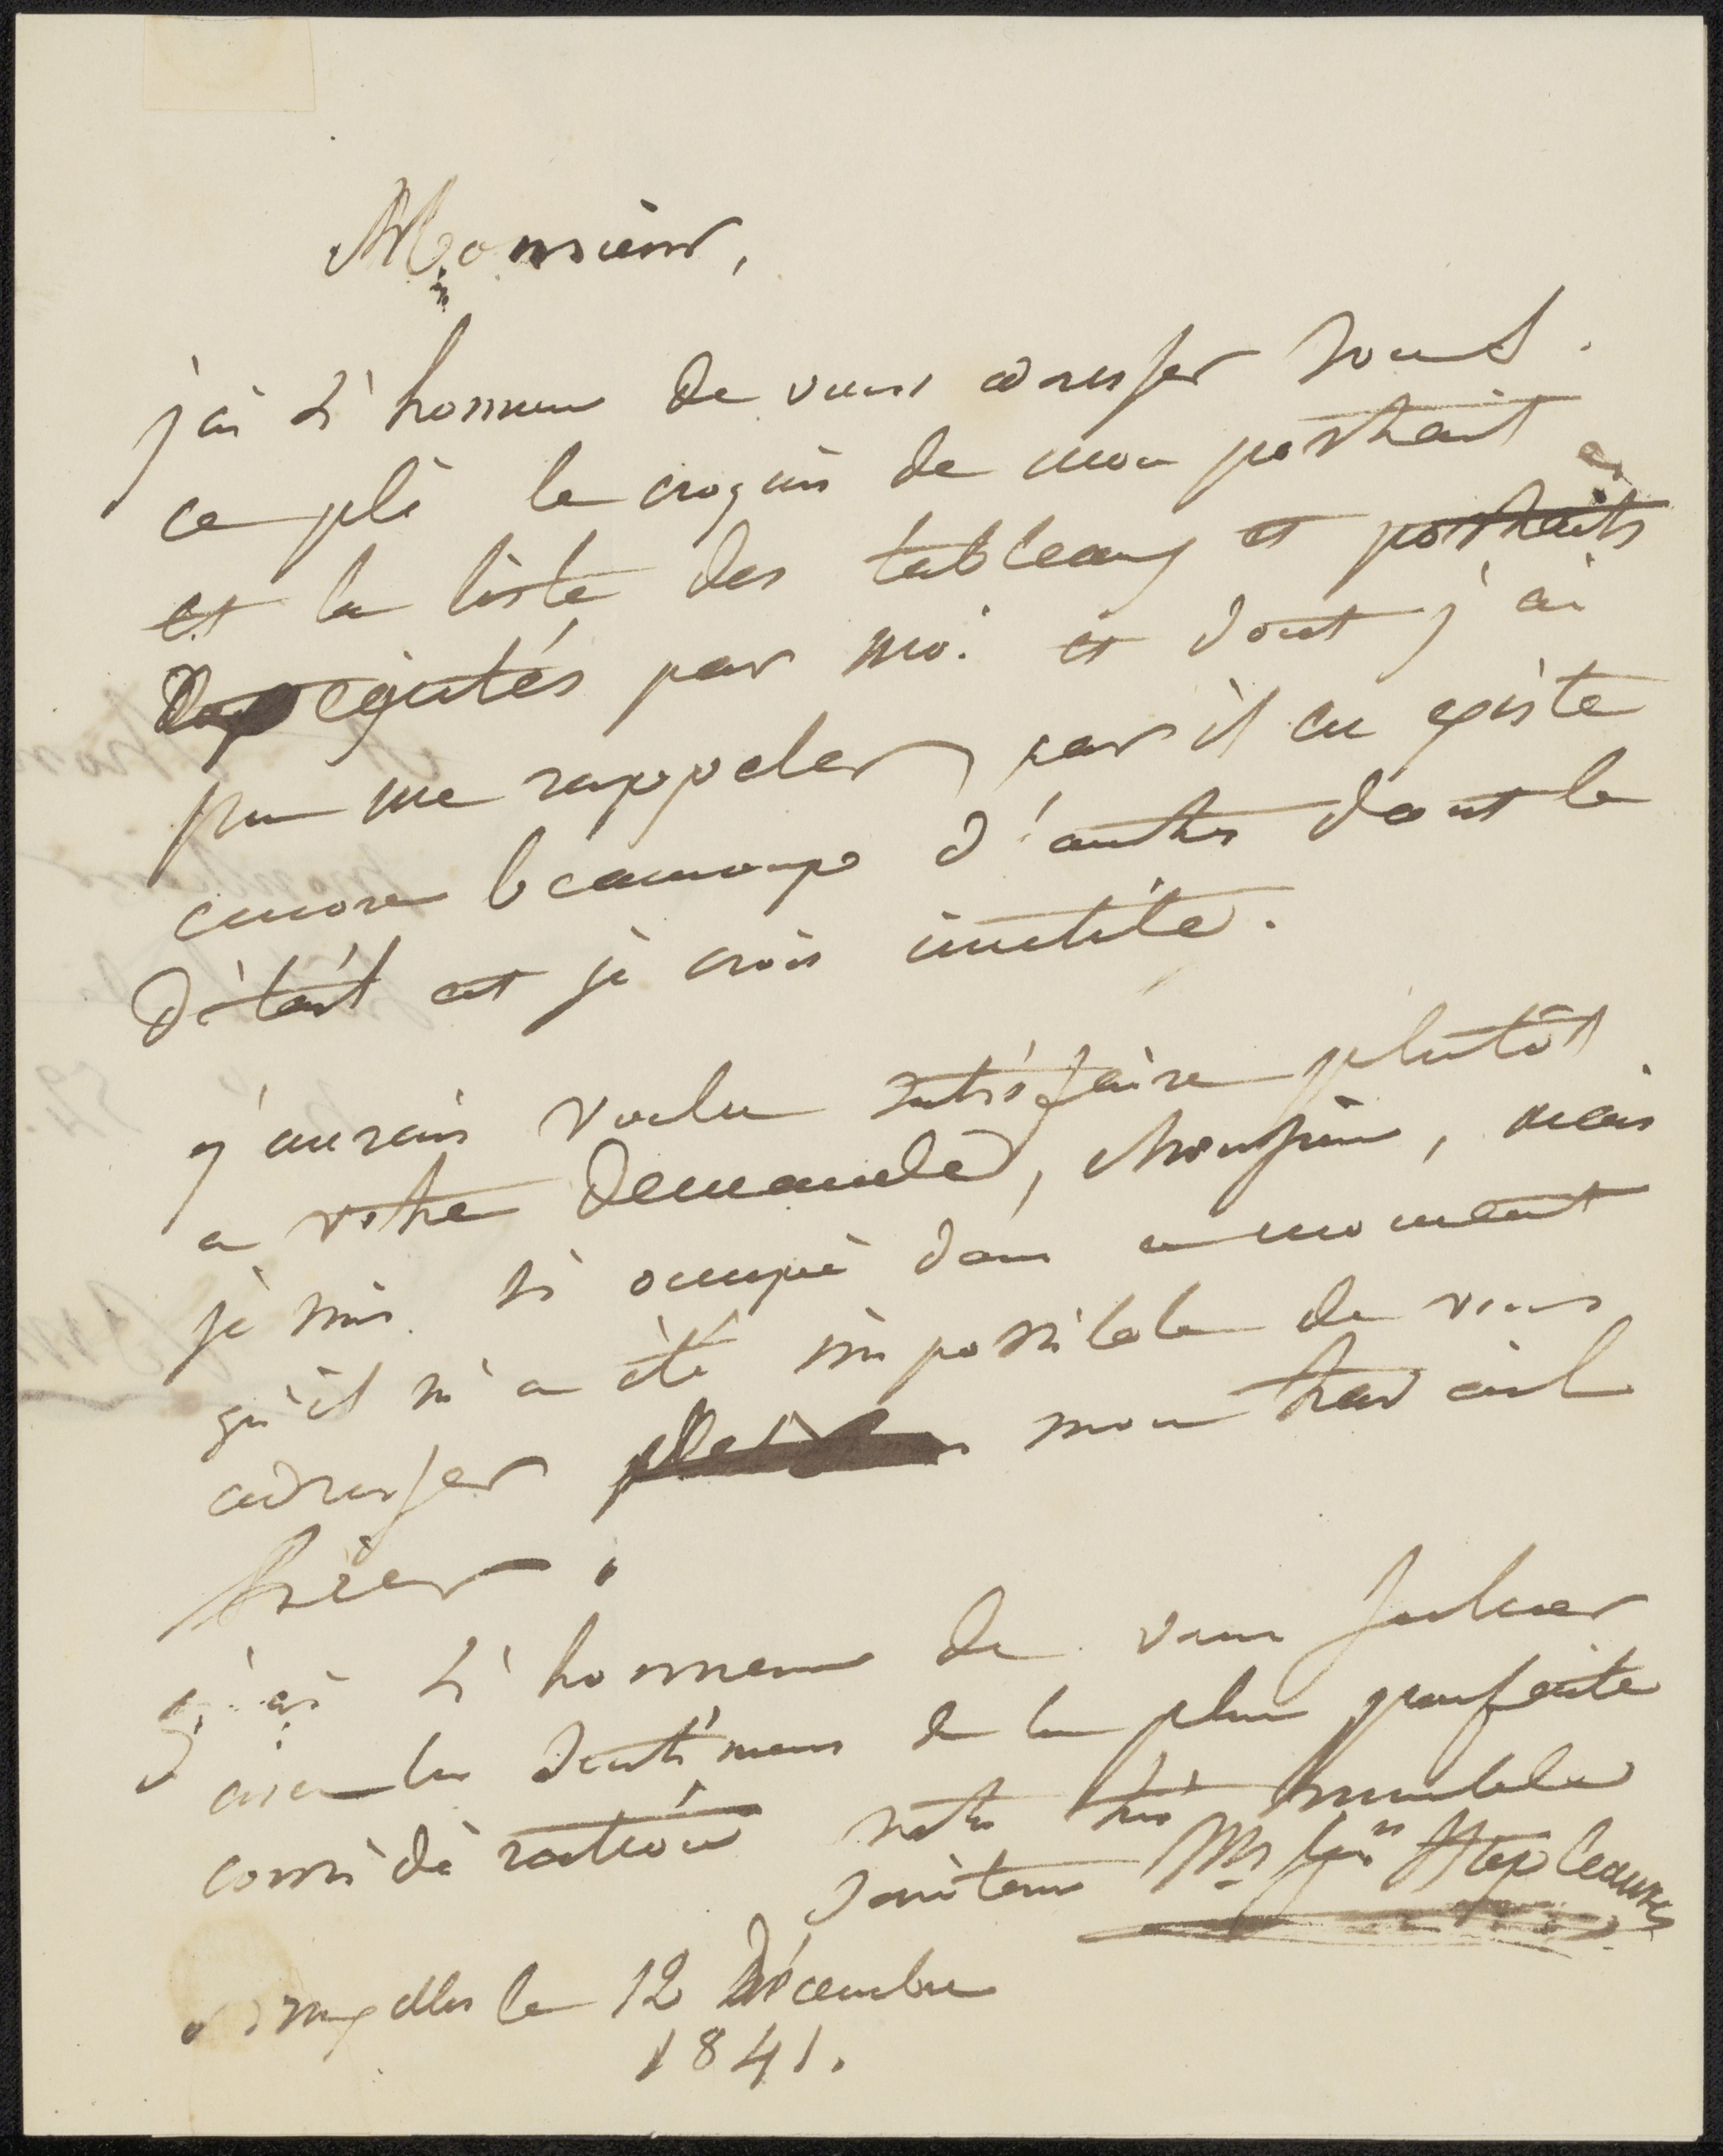 Monsieur,
j'ai l'honneur de vous adresser sous
ce pli le croquis de mon portrait
et la liste des tableaux et portraits
exécutés par moi et dont j'ai
pu me rappeler, car il en existe
encore beaucoup d'autres dont le
détail est je crois inutile.
j'aurais voulu satisfaire plutôt
a votre demande, Monsieur, mais
je suis si occupé dans ce moment
qu'il m'a été impossible de vous
adresser mon travail
hier.
j'ai l'honneur de vous saluer
avec les sentimens de la plus parfaite
considération votre très humble
serviteur Mel fçois Stapleaux
Bruxelles le 12 Décembre
1841.